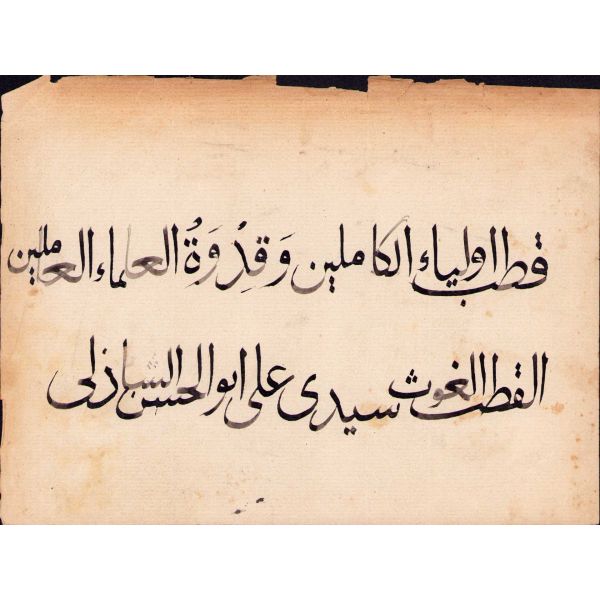 قطب اولياء الكاملين وَقِدْوَةُ العلماء العاملين
القطب الغوث سيدى على ابو الحسن الشاذلى